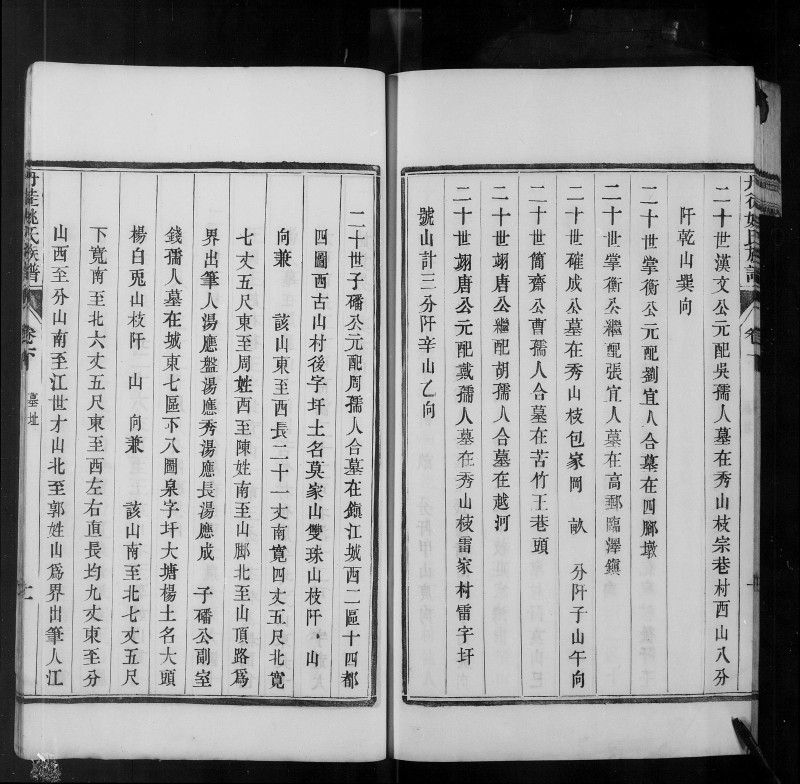 二十世漢文公元配吳孺人墓在秀山枝宗巷村西山八分
阡乾山巽向
二十世掌衡公元配劉宜人合墓在四腳墩
二十世掌衡公繼配張宜人墓在高郵臨澤鎮
二十世確成公墓在秀山枝包家岡 畝 分阡子山午向
二十世簡齋公曹孺人合墓在苦竹王巷頭
二十世翊唐公繼配胡孺人合墓在越河
二十世翊唐公元配戴孺人墓在秀山枝雷家村雷字圩
號山計三分阡辛山乙向
二十世子磻公元配周孺人合墓在鎮江城西二區十四都
四圖西古山村後字圩土名莫家山雙珠山枝阡 山
向兼 該山東至西長二十一丈南寬四丈五尺北寬
七丈五尺東至周姓西至陳姓南至山腳北至山頂路為
界出筆人湯應盤湯應秀湯應長湯應成 子磻公副室
錢孺人墓在城東七區下八圖泉字圩大塘楊土名大頭
楊白兎山枝阡 山 向兼 該山南至北七丈五尺
下寬南至北六丈五尺東至西左右直長均九丈東至分
山西至分山南至江世才山北至郭姓山為界出筆人江
丹徒姚氏族譜 卷下 墓址